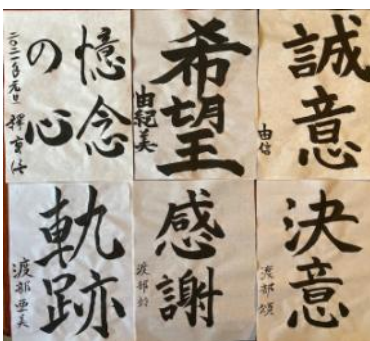 憶念
の心
二〇二一年元旦
希望
由紀美
誠意
由信
軌跡
渡部亜美
感謝
渡部
決意
渡部